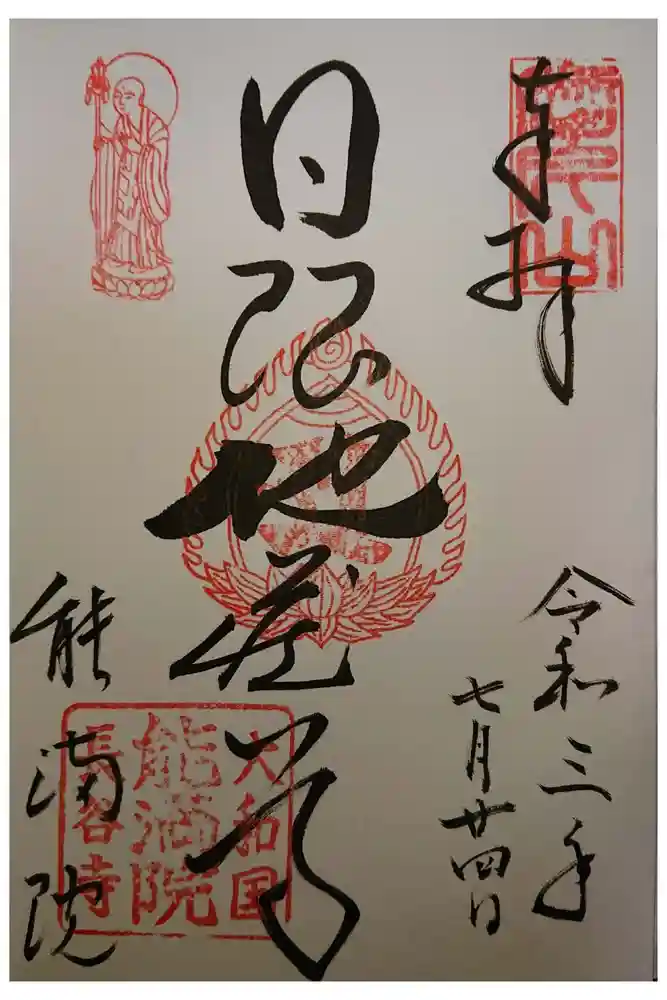 奉拝
令和三年
七月廿四日
日限地蔵尊
能満院
大和国
能満院
長谷寺